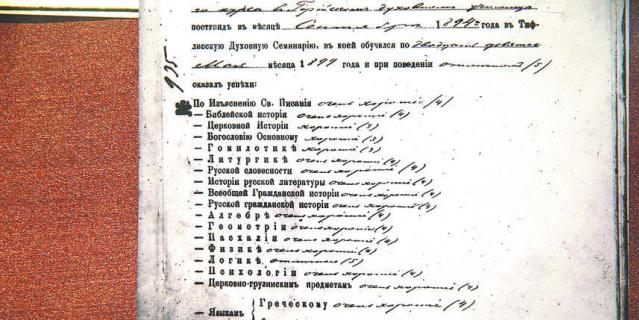 го курса въ Горійскомъ духовномъ училищѣ
поступилъ въ мѣсяцѣ Сентябрѣ 1894 года въ Тиф-
лисскую Духовную Семинарію, въ коей обучался по двадцать девятое
Мая мѣсяца 1899 года и при поведеніи отличномъ (5)
оказалъ успѣхи:
935
По Изъясненію Св. Писанія очень хорошіе (4)
— Библейской исторіи очень хорошіе (4)
— Церковной Исторіи хорошіе (3)
— Богословію Основному хорошіе (3)
— Гомилетикѣ хорошіе (3)
— Литургикѣ очень хорошіе (4)
— Русской словесности очень хорошіе (4)
— Исторіи русской литературы очень хорошіе (4)
— Всеобщей Гражданской исторіи очень хорошіе (4)
— Русской гражданской исторіи очень хорошіе (4)
— Алгебрѣ очень хорошіе (4)
— Геометріи очень хорошіе (4)
— Пасхаліи очень хорошіе (4)
— Физикѣ очень хорошіе (4)
— Логикѣ отличные (5)
— Психологіи очень хорошіе (4)
— Церковно-грузинскимъ предметамъ очень хорошіе (4)
— Языкамъ { Греческому очень хорошіе (4)